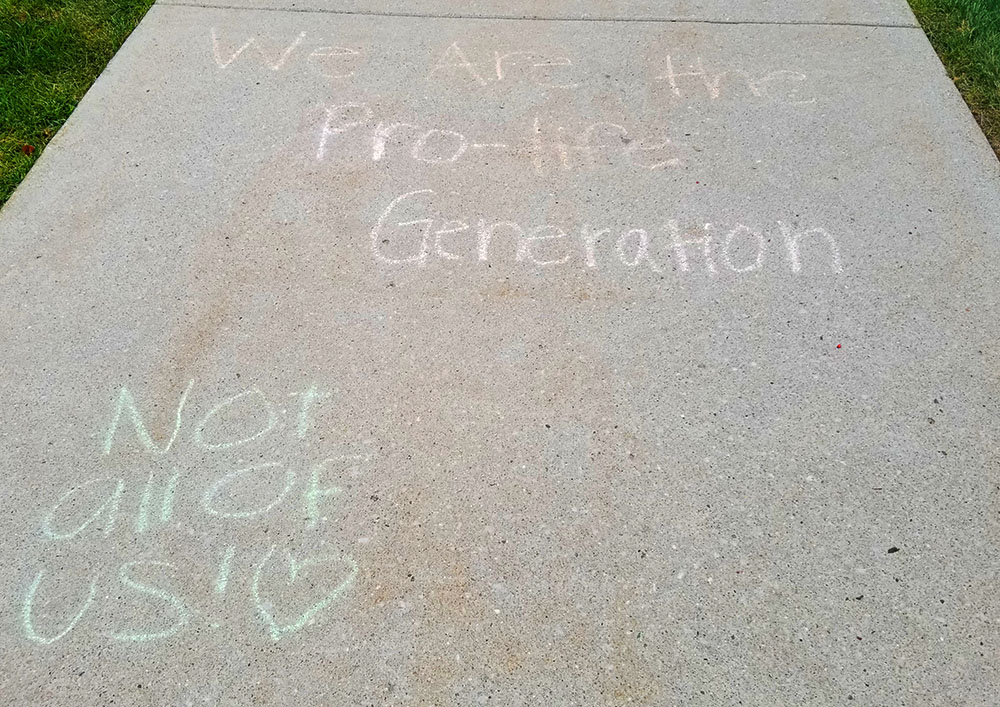 We Are the
Pro-life
Generation
Not
all OF
US! ♡